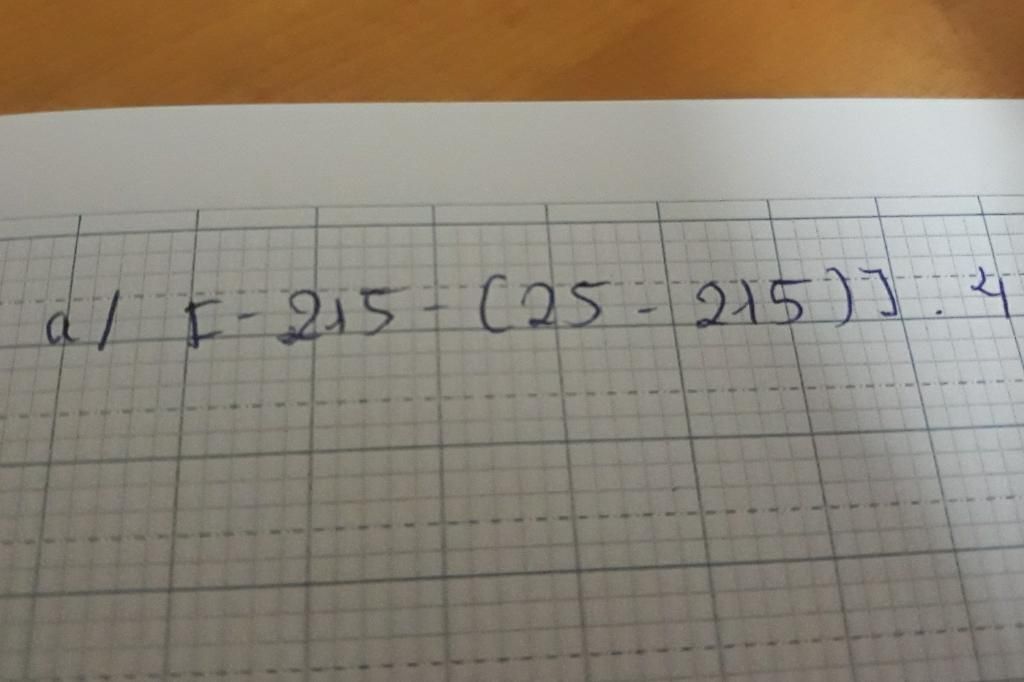 a/ [- 215 - (25 - 215)] . 4